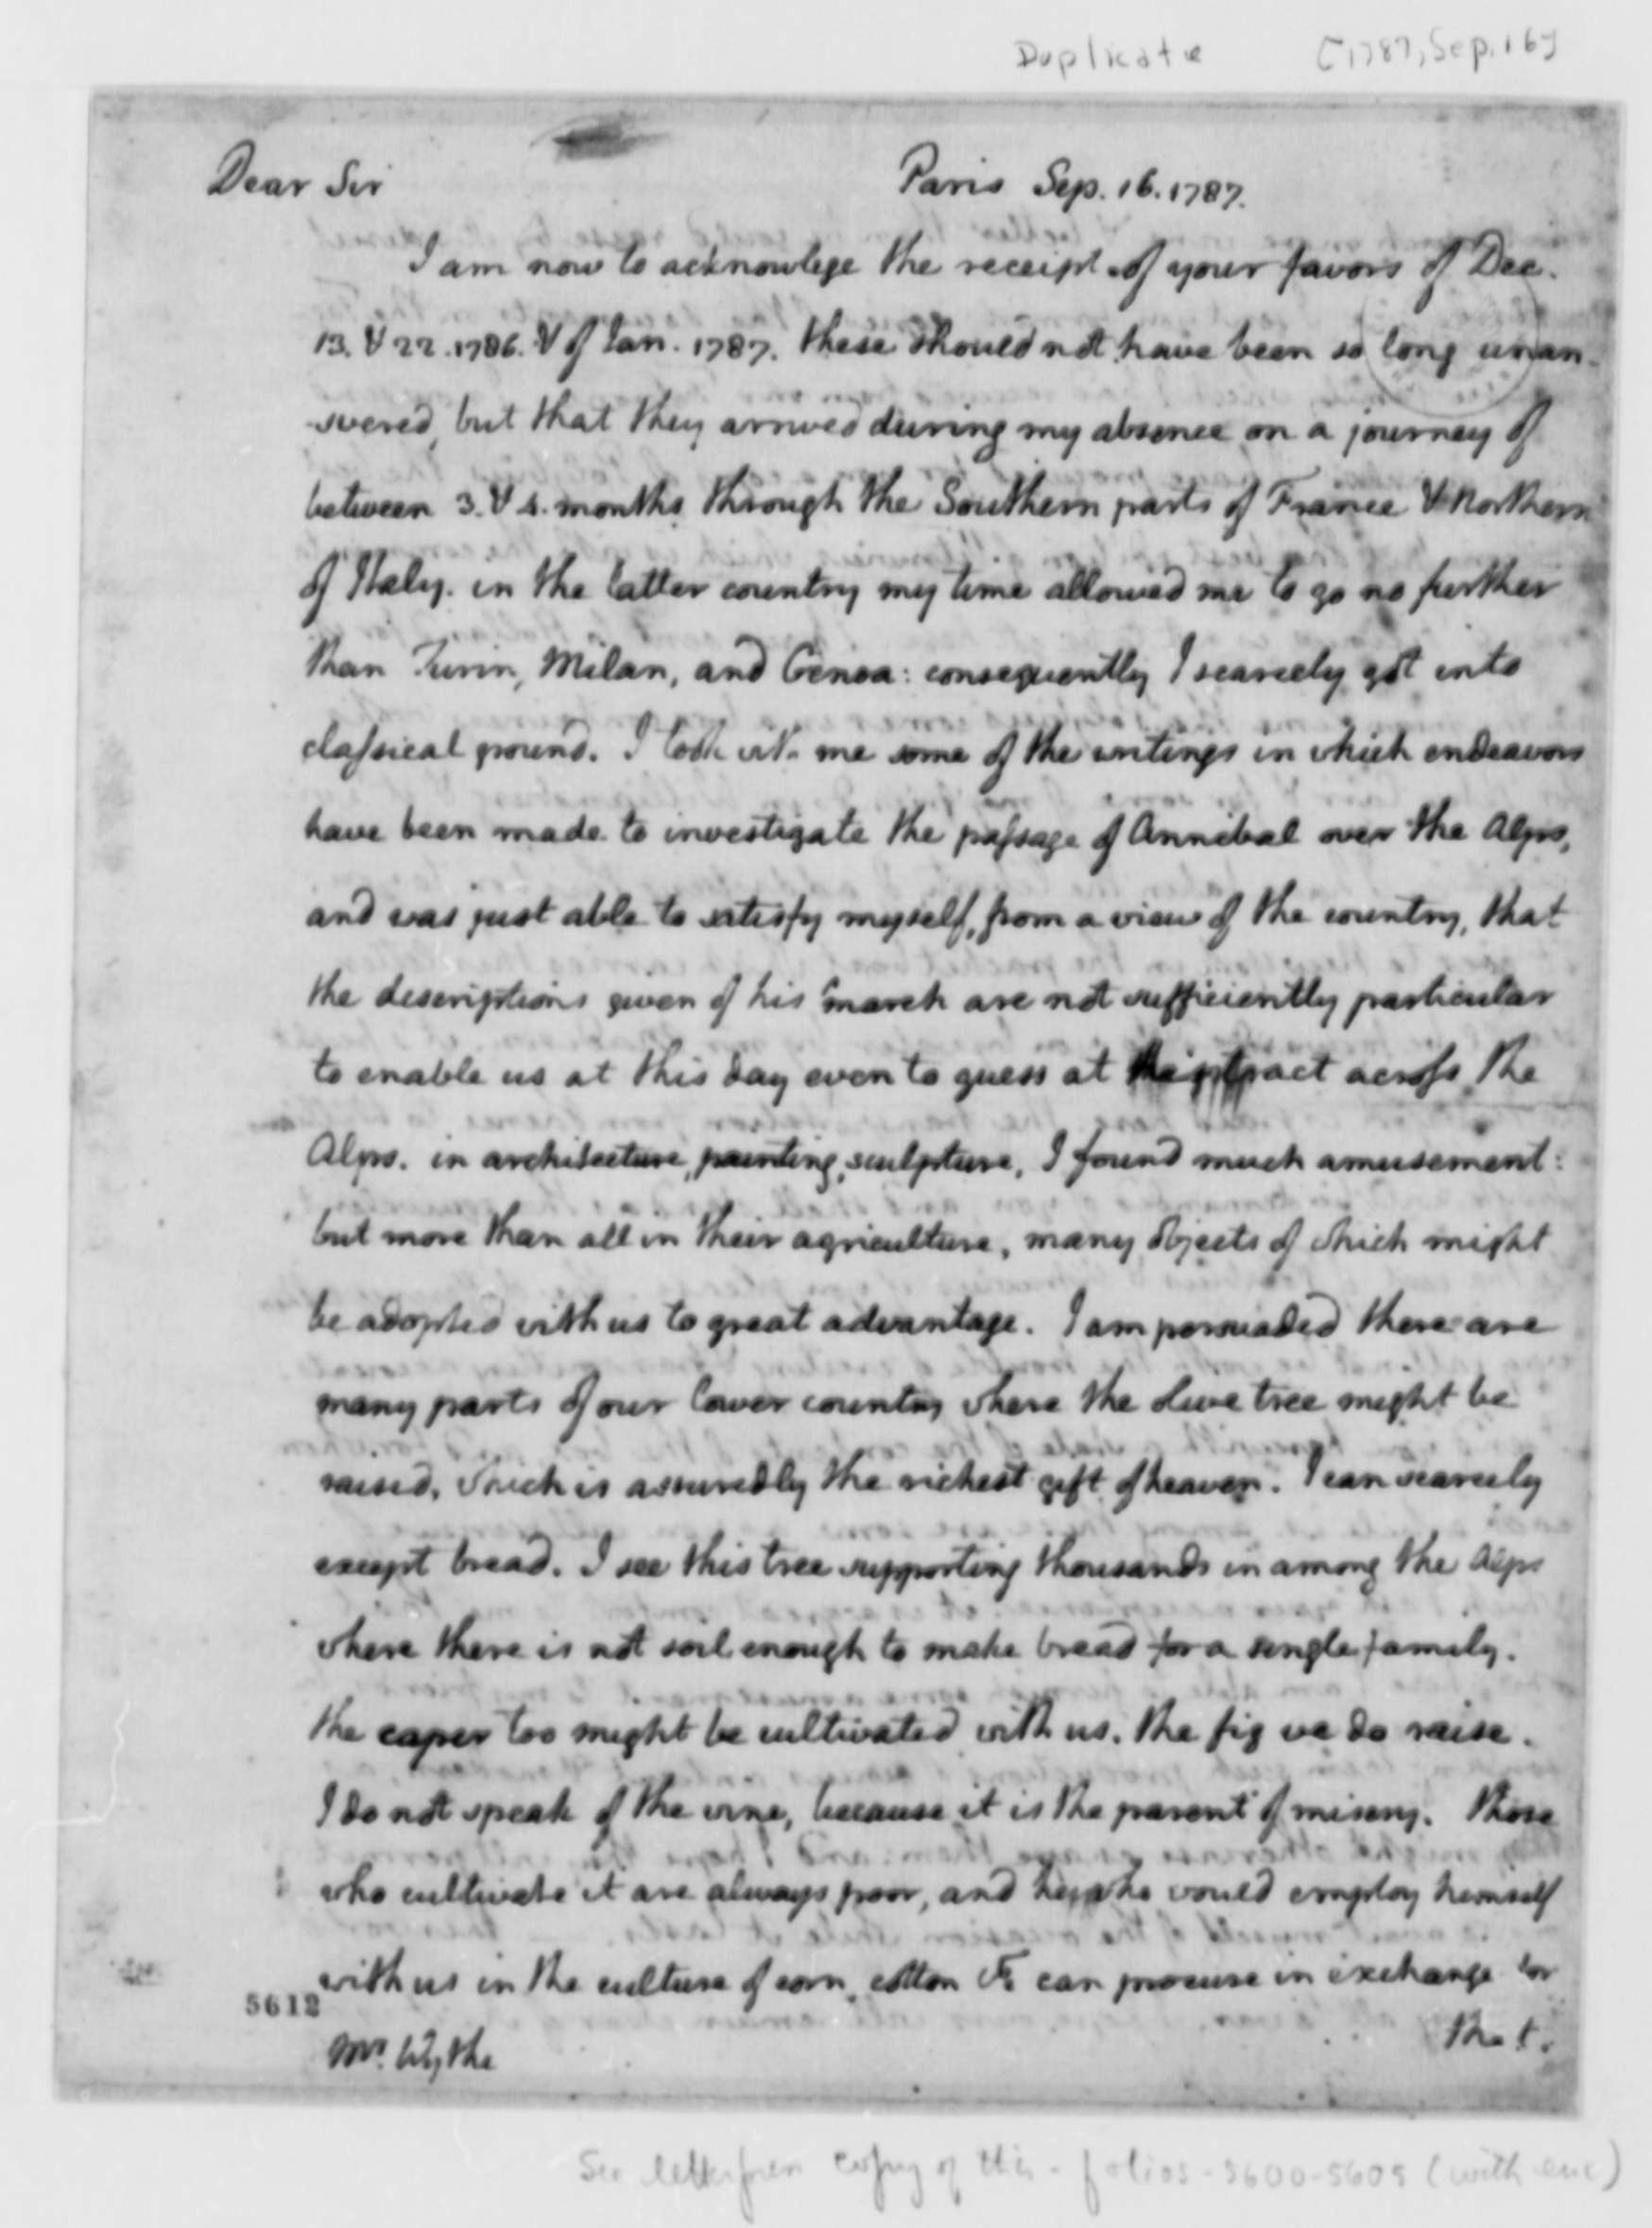 Duplicate [1787, Sep. 16]
Dear Sir Paris Sep. 16. 1787.
I am now to acknowlege the receipt of your favors of Dec.
13. & 22. 1786. & of Jan. 1787. these should not have been so long unan-
-swered, but that they arrived during my absence on a journey of
between 3. & 4. months through the Southern parts of France & Northern
of Italy. in the latter country my time allowed me to go no further
than Turin, Milan, and Genoa: consequently I scarcely got into
classical ground. I took with me some of the writings in which endeavors
have been made to investigate the passage of Annibal over the Alps,
and was just able to satisfy myself, from a view of the country, that
the descriptions given of his march are not sufficiently particular
to enable us at this day even to guess at his tract across the
Alps. in architecture, painting, sculpture, I found much amusement:
but more than all in their agriculture, many objects of which might
be adopted with us to great advantage. I am persuaded there are
many parts of our lower country where the olive tree might be
raised, which is assuredly the richest gift of heaven. I can scarcely
except bread. I see this tree supporting thousands in among the Alps
where there is not soil enough to make bread for a single family.
the caper too might be cultivated with us. the fig we do raise.
I do not speak of the vine, because it is the parent of misery. those
who cultivate it are always poor, and he who would employ himself
with us in the culture of corn, cotton &c. can procure in exchange for
5612
that.
Mr. Wythe
See letterpress copy of this - folios - 5600-5605 (with enc)